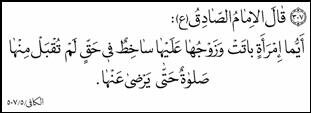 ﴿۳۰۷﴾ قَالَ الْاِمَامُ الصَّادِقُ (ع):
اَيُّمَا اِمْرَأَةٍ بَاتَتْ وَزَوْجُهَا عَلَيْهَا سَاخِطٌ فِى حَقٍّ لَمْ تُقْبَلْ مِنْهَا
صَلٰوةٌ حَتّٰى يَرْضٰى عَنْهَا.
الكافى/۵/۵۰۷